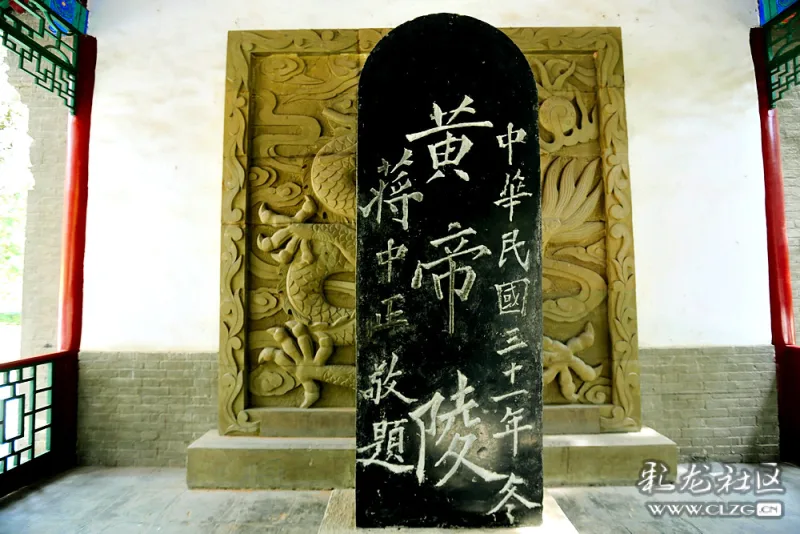 中華民國三十一年冬
黃帝陵
蔣中正敬題
彩龙社区
www.CLZG.CN